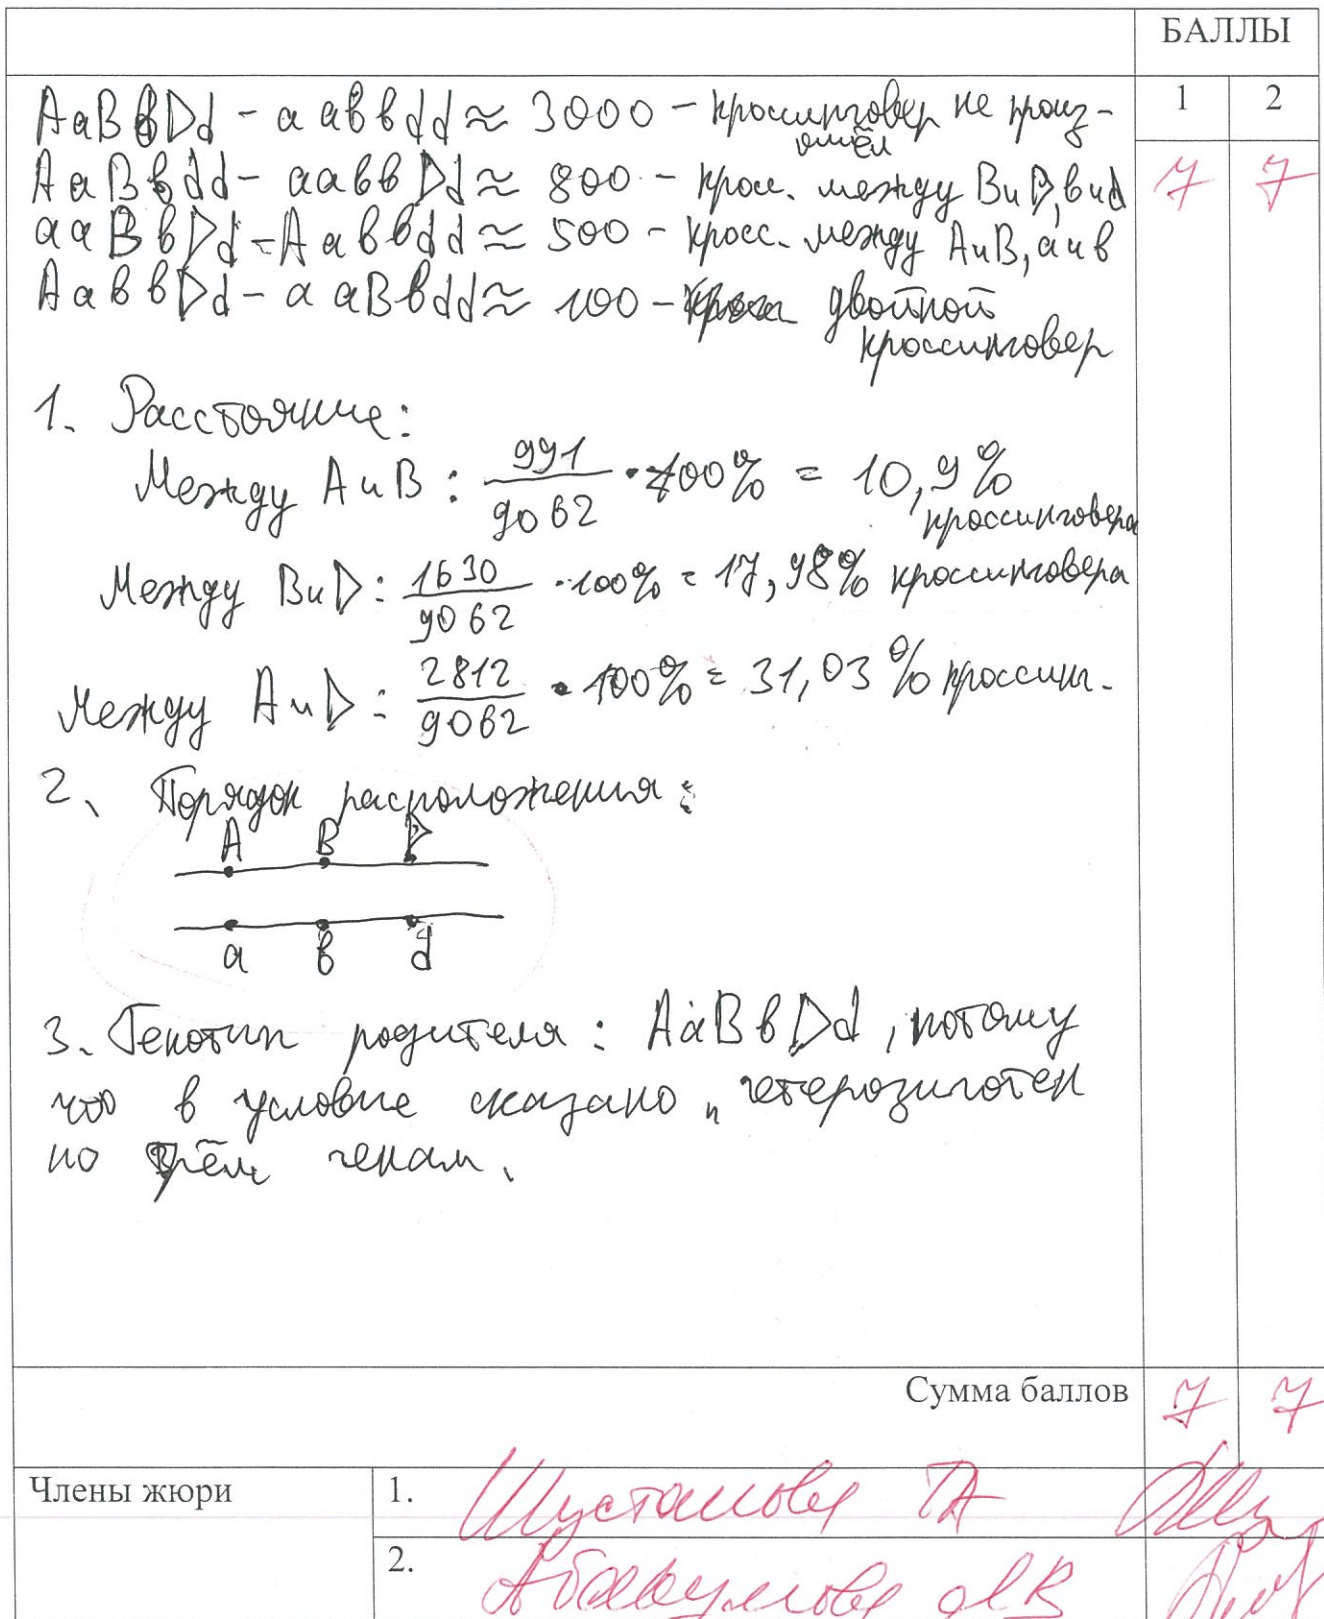 БАЛЛЫ
1 2
AaBвDd - aaввdd ≈ 3000 - кроссинговер не произ-
ошёл
AaBвdd - aaввDd ≈ 800 - кросс. между B и D, в и d
7 7
aaBвDd - Aaввdd ≈ 500 - кросс. между A и B, a и в
AaввDd - aaBвdd ≈ 100 - двойной
кроссинговер
1. Расстояние:
Между A и B : 991/9062 · 100% = 10,9%
кроссинговера
Между B и D : 1630/9062 · 100% = 17,98% кроссинговера
Между A и D : 2812/9062 · 100% = 31,03% кроссинг.
2. Порядок расположения:
A B D
a в d
3. Генотип родителя : AaBвDd, потому
что в условие сказано „гетерозиготен
по трём генам.
Сумма баллов 7 7
Члены жюри
1. Шустанова ТА
2. АВ